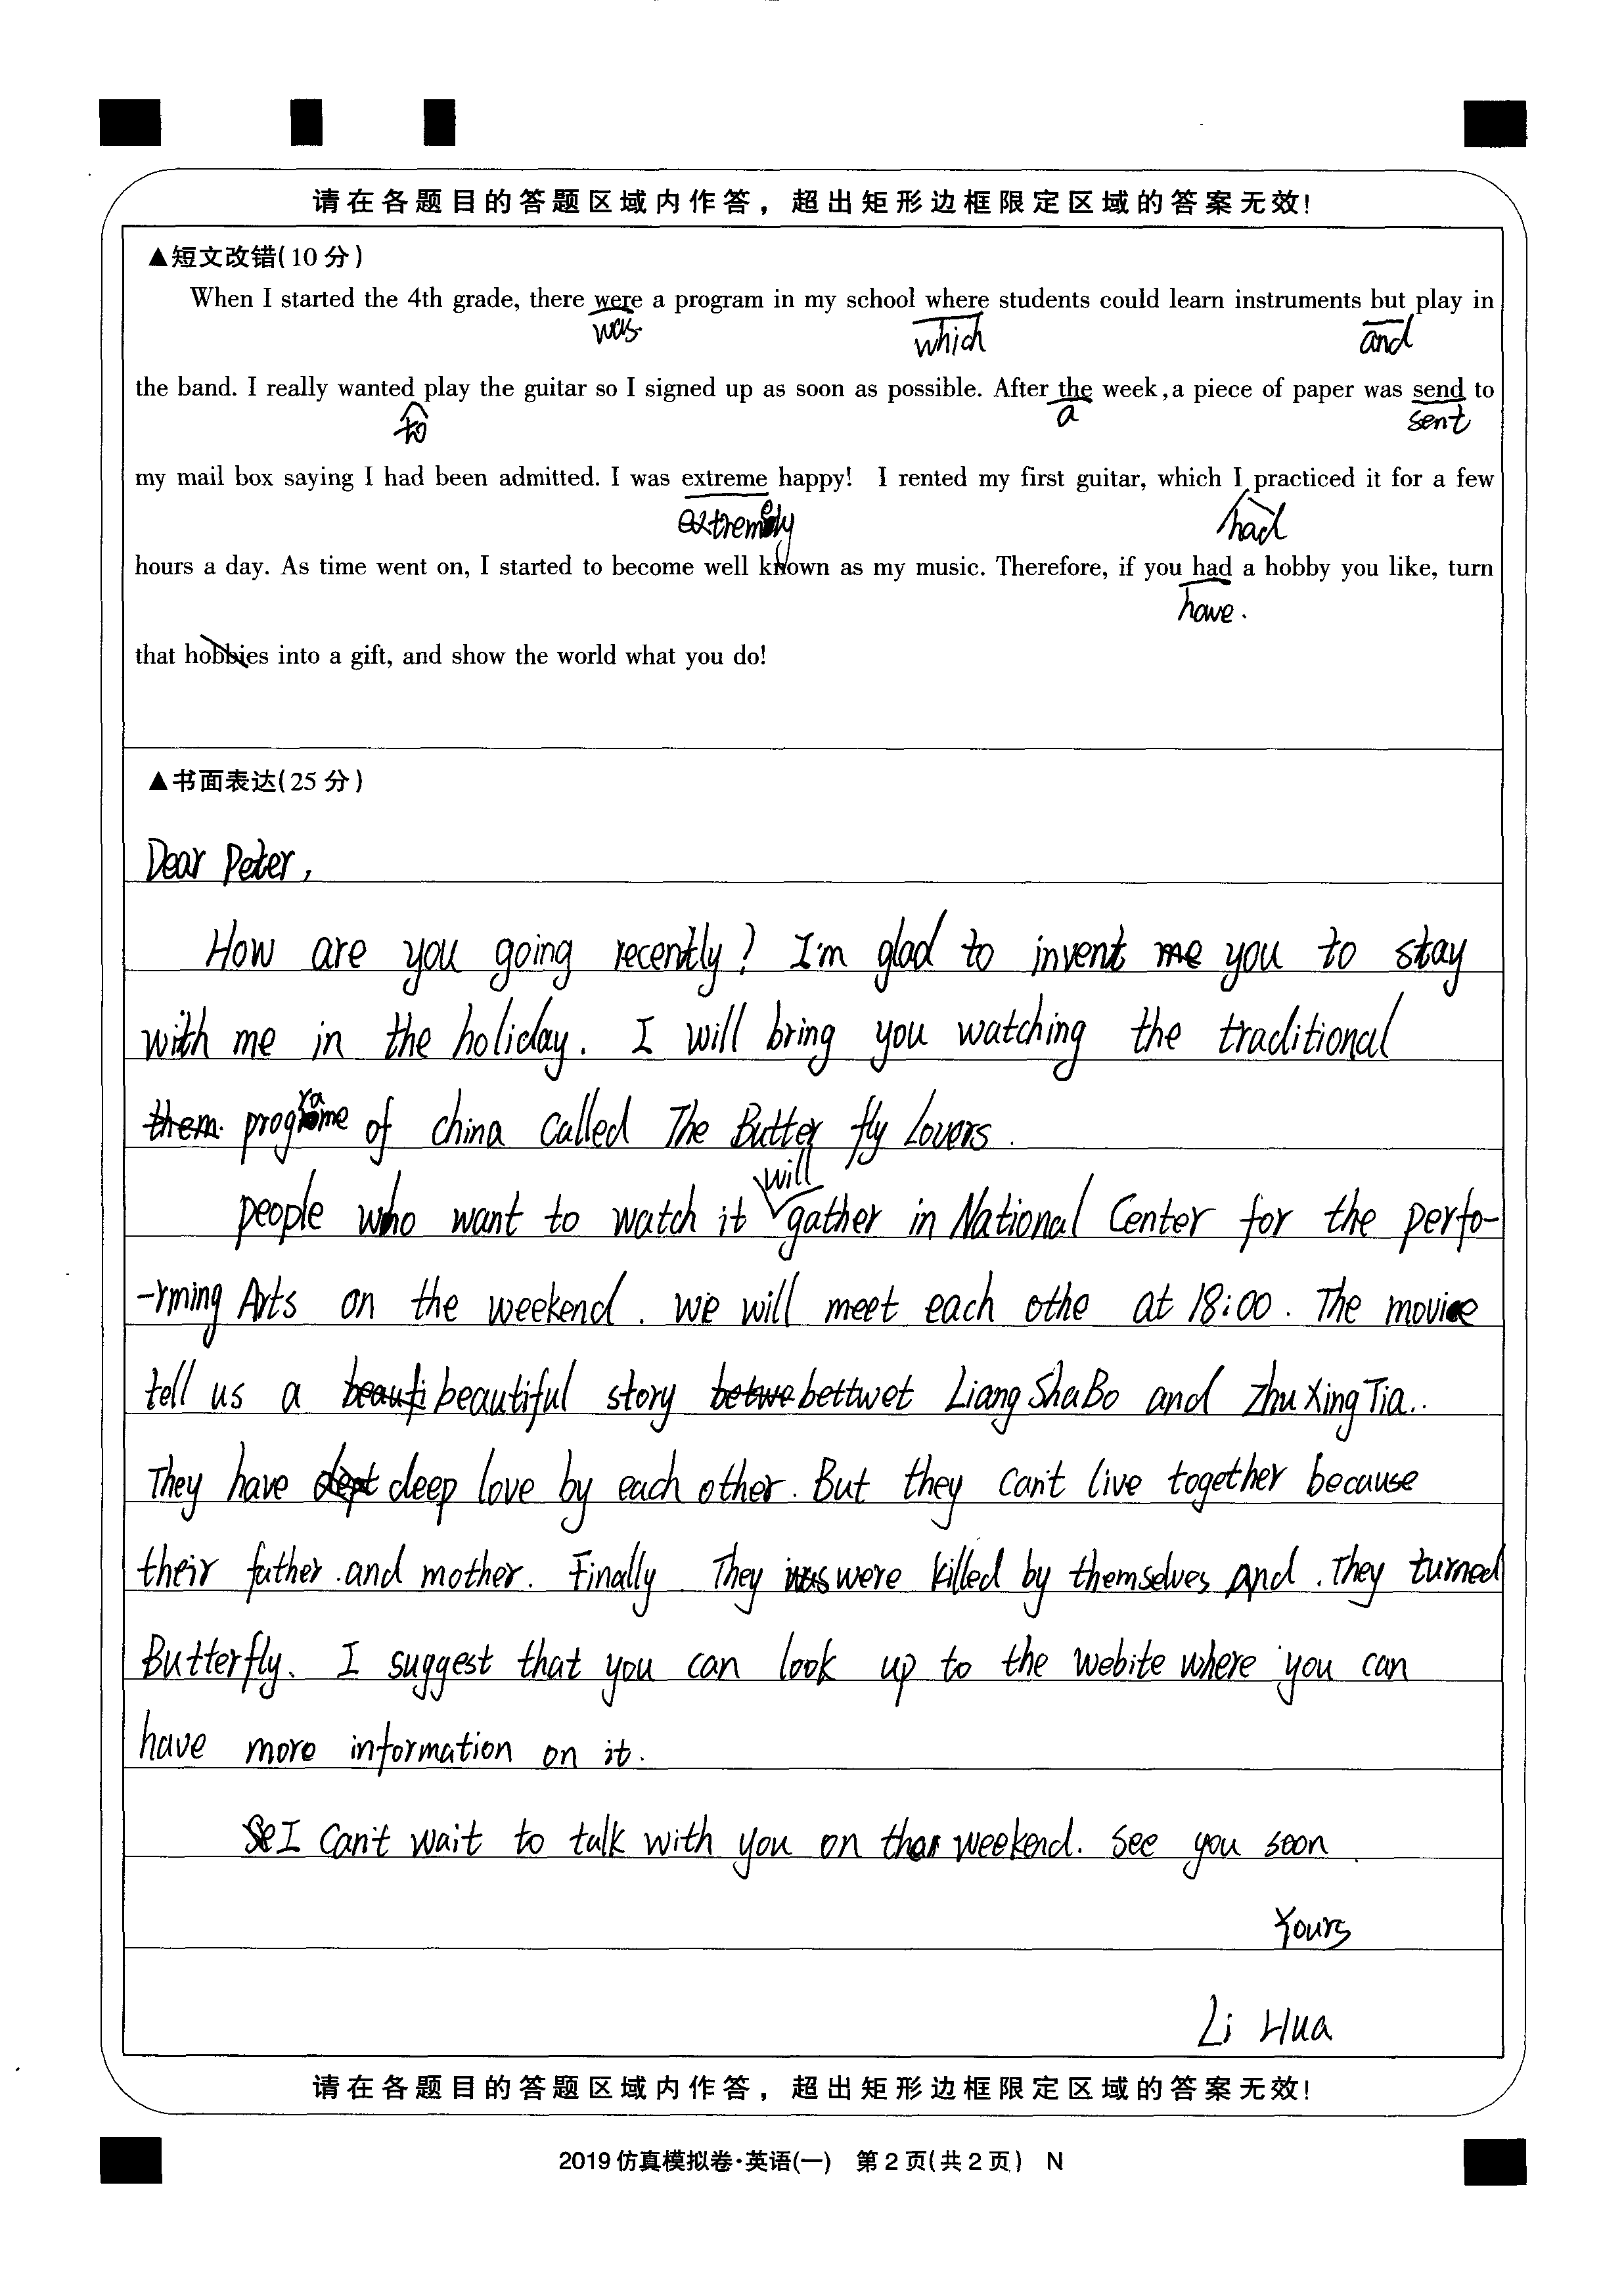 请在各题目的答题区域内作答，超出矩形边框限定区域的答案无效！
▲短文改错(10分)
When I started the 4th grade, there were a program in my school where students could learn instruments but play in
was. which and
the band. I really wanted play the guitar so I signed up as soon as possible. After the week, a piece of paper was send to
to a sent
my mail box saying I had been admitted. I was extreme happy! I rented my first guitar, which I practiced it for a few
extremely had
hours a day. As time went on, I started to become well known as my music. Therefore, if you had a hobby you like, turn
have.
that hobbies into a gift, and show the world what you do!
▲书面表达(25分)
Dear Peter,
How are you going recently? I'm glad to invent me you to stay
with me in the holiday. I will bring you watching the traditional
them. programe of china called The Butter fly Lovers.
will
people who want to watch it gather in National Center for the perfo-
-rming Arts on the weekend. We will meet each othe at 18:00. The movie
tell us a beauti beautiful story betwe bettwet Liang ShaBo and Zhu XingTia..
They have dept deep love by each other. But they can't live together because
their father .and mother. Finally. They was were killed by themselves And. They turned
Butterfly. I suggest that you can look up to the webite where you can
have more information on it.
Se I can't wait to talk with you on that weekend. See you soon.
Yours
Li Hua
请在各题目的答题区域内作答，超出矩形边框限定区域的答案无效！
2019仿真模拟卷·英语(一) 第2页(共2页) N